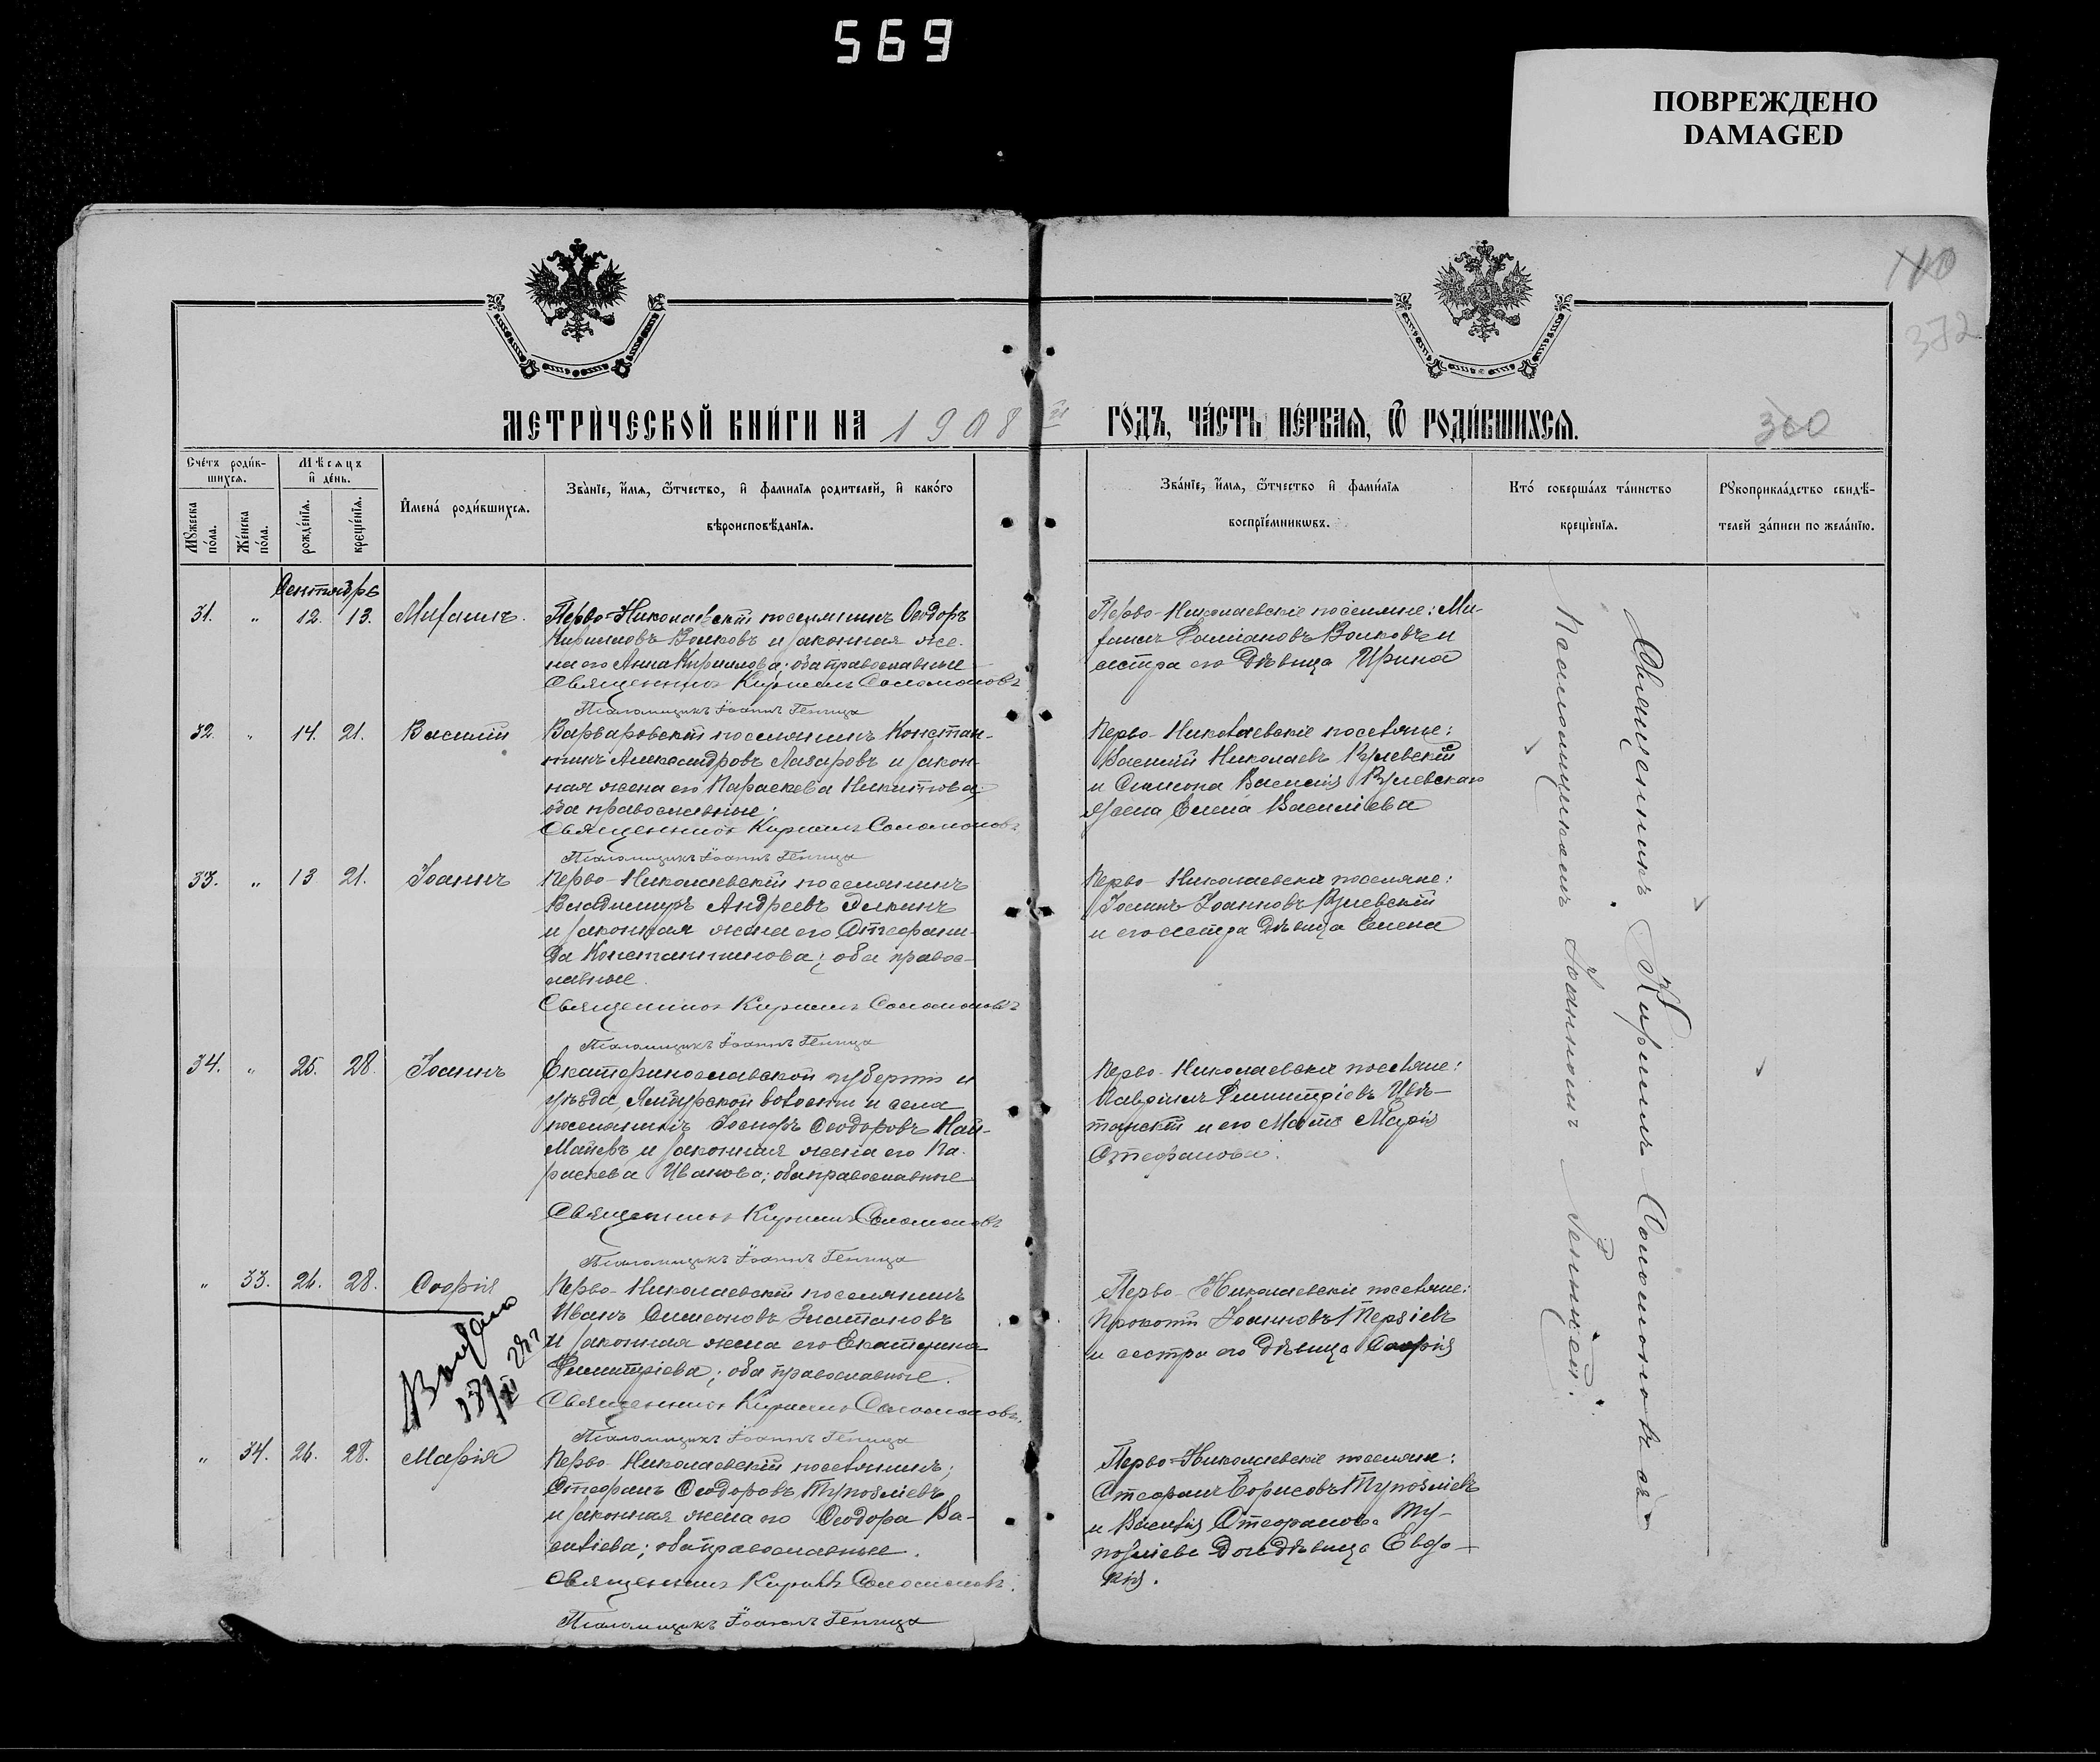 569
ПОВРЕЖДЕНО
DAMAGED
110
372
МЕТРИ́ЧЕСКОЙ КНИ́ГИ НА 1908 й ГО́ДЪ, ЧА́СТЬ ПЕ́РВАЯ, Ѿ РОДИ́ВШИХСЯ.
360
Сче́тъ роди́в-
шихся.
Мѣ́сяцъ
и҆ де́нь.
Мꙋ́жеска по́ла.
Же́нска по́ла.
рожде́нїя.
креще́нїя.
И҆мена̀ роди́вшихся.
Зва́нїе, и҆́мя, ѻ҆́тчество, и҆ фами́лїя роди́телей, и҆ како́го
вѣроисповѣ́данїя.
Зва́нїе, и҆́мя, ѻ҆́тчество и҆ фами́лїя
воспрїе́мниковъ.
Кто́ соверша́лъ та́инство
креще́нїя.
Рꙋкоприкла́дство свидѣ́-
телей за́писи по жела́нїю.
Сентябрь
31. „ 12. 13. Михаилъ.
Перво-Николаевскій поселянинъ Ѳеодоръ
Кирилловъ Волковъ и законная же-
на его Анна Кириллова; оба православные
Священникъ Кириллъ Соломоновъ
Псаломщикъ Іоаннъ Генчица
Перво-Николаевскіе поселяне: Ми-
хаилъ Даміановъ Волковъ и
сестра его дѣвица Ирина
32. „ 14. 21. Василій
Варваровскій поселянинъ Констан-
тинъ Александровъ Лазаровъ и закон-
ная жена его Параскева Никитова;
оба православные
Священникъ Кириллъ Соломоновъ
Псаломщикъ Іоаннъ Генчица
Перво-Николаевскіе поселяне:
Василій Николаевъ
и Симеона Василія
жена Елена Василіева
33. „ 13 21. Іоаннъ
Перво-Николаевскій поселянинъ
Владимиръ Андреевъ
и законная жена его Стефани-
да Константинова; оба правос-
лавные.
Священникъ Кириллъ Соломоновъ
Псаломщикъ Іоаннъ Генчица
Перво-Николаевскіе поселяне:
Іоаннъ Іоанновъ
и его сестра дѣвица Елена
34. „ 25. 28. Іоаннъ
Екатеринославской губерніи и
уѣзда, волости и села
поселянинъ Ѳеодоровъ Най-
и законная жена его Па-
раскева Иванова; оба православные
Священникъ Кириллъ Соломоновъ
Псаломщикъ Іоаннъ Генчица
Перво-Николаевскіе поселяне:
Димитріевъ Цвѣ-
танскій и его мать Марія
Стефанова.
„ 33. 26. 28. Софія
Перво-Николаевскій поселянинъ
Иванъ Симеоновъ Златановъ
и законная жена его Екатерина
Димитріева; оба православные.
Священникъ Кириллъ Соломоновъ.
Псаломщикъ Іоаннъ Генчица
Перво-Николаевскіе поселяне:
Прокопій Іоанновъ
и сестра его дѣвица Софія
„ 34. 26. 28. Марія
Перво-Николаевскій поселянинъ;
Стефанъ Ѳеодоровъ
и законная жена его Ѳеодора Ва-
силіева; оба православные.
Священникъ Кириллъ Соломоновъ.
Псаломщикъ Іоаннъ Генчица
Перво-Николаевскіе поселяне:
Стефанъ Борисовъ
и Василія Стефанова
дочь дѣвица Евдо-
кія.
Священникъ Кириллъ Соломоновъ съ
Псаломщикомъ Іоанномъ Генчицей.